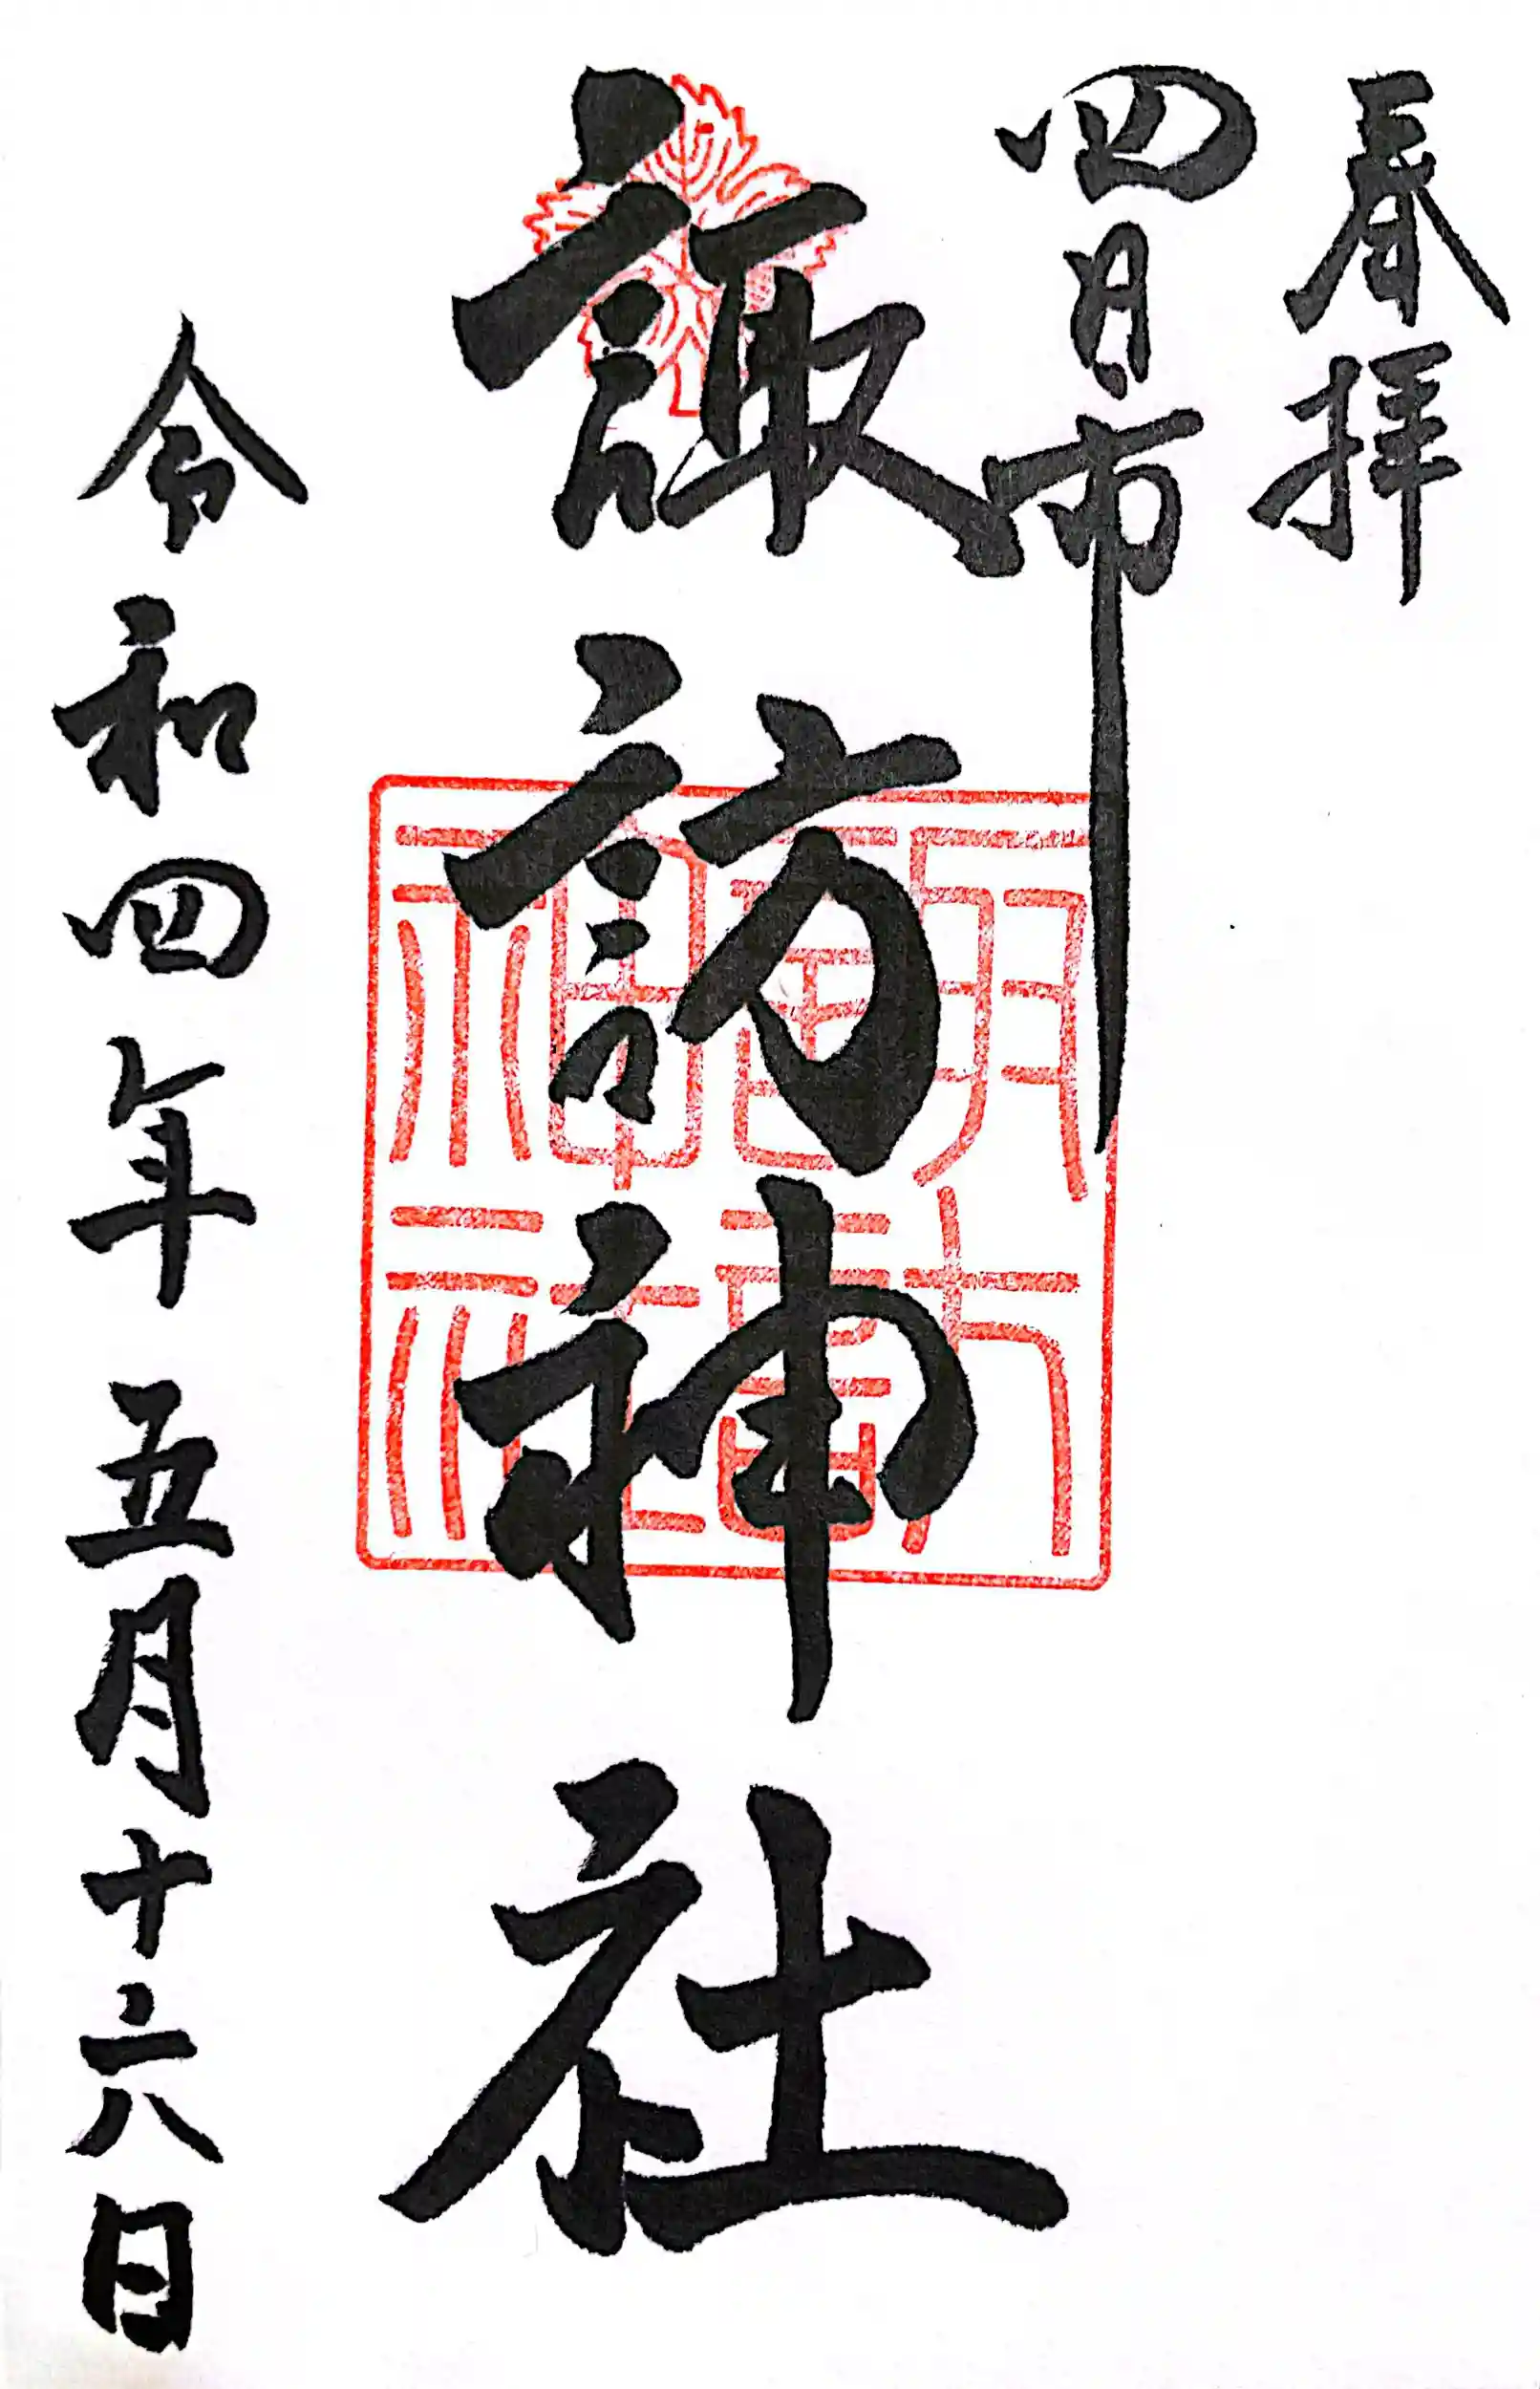 奉拝
四日市
諏訪神社
令和四年五月十六日
諏訪
神社